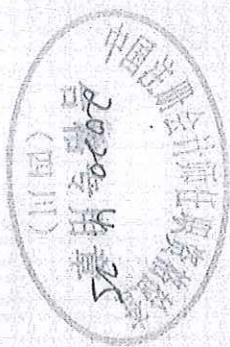 中国注册会计师任职资格检查
2020
合格专用章
（四川）